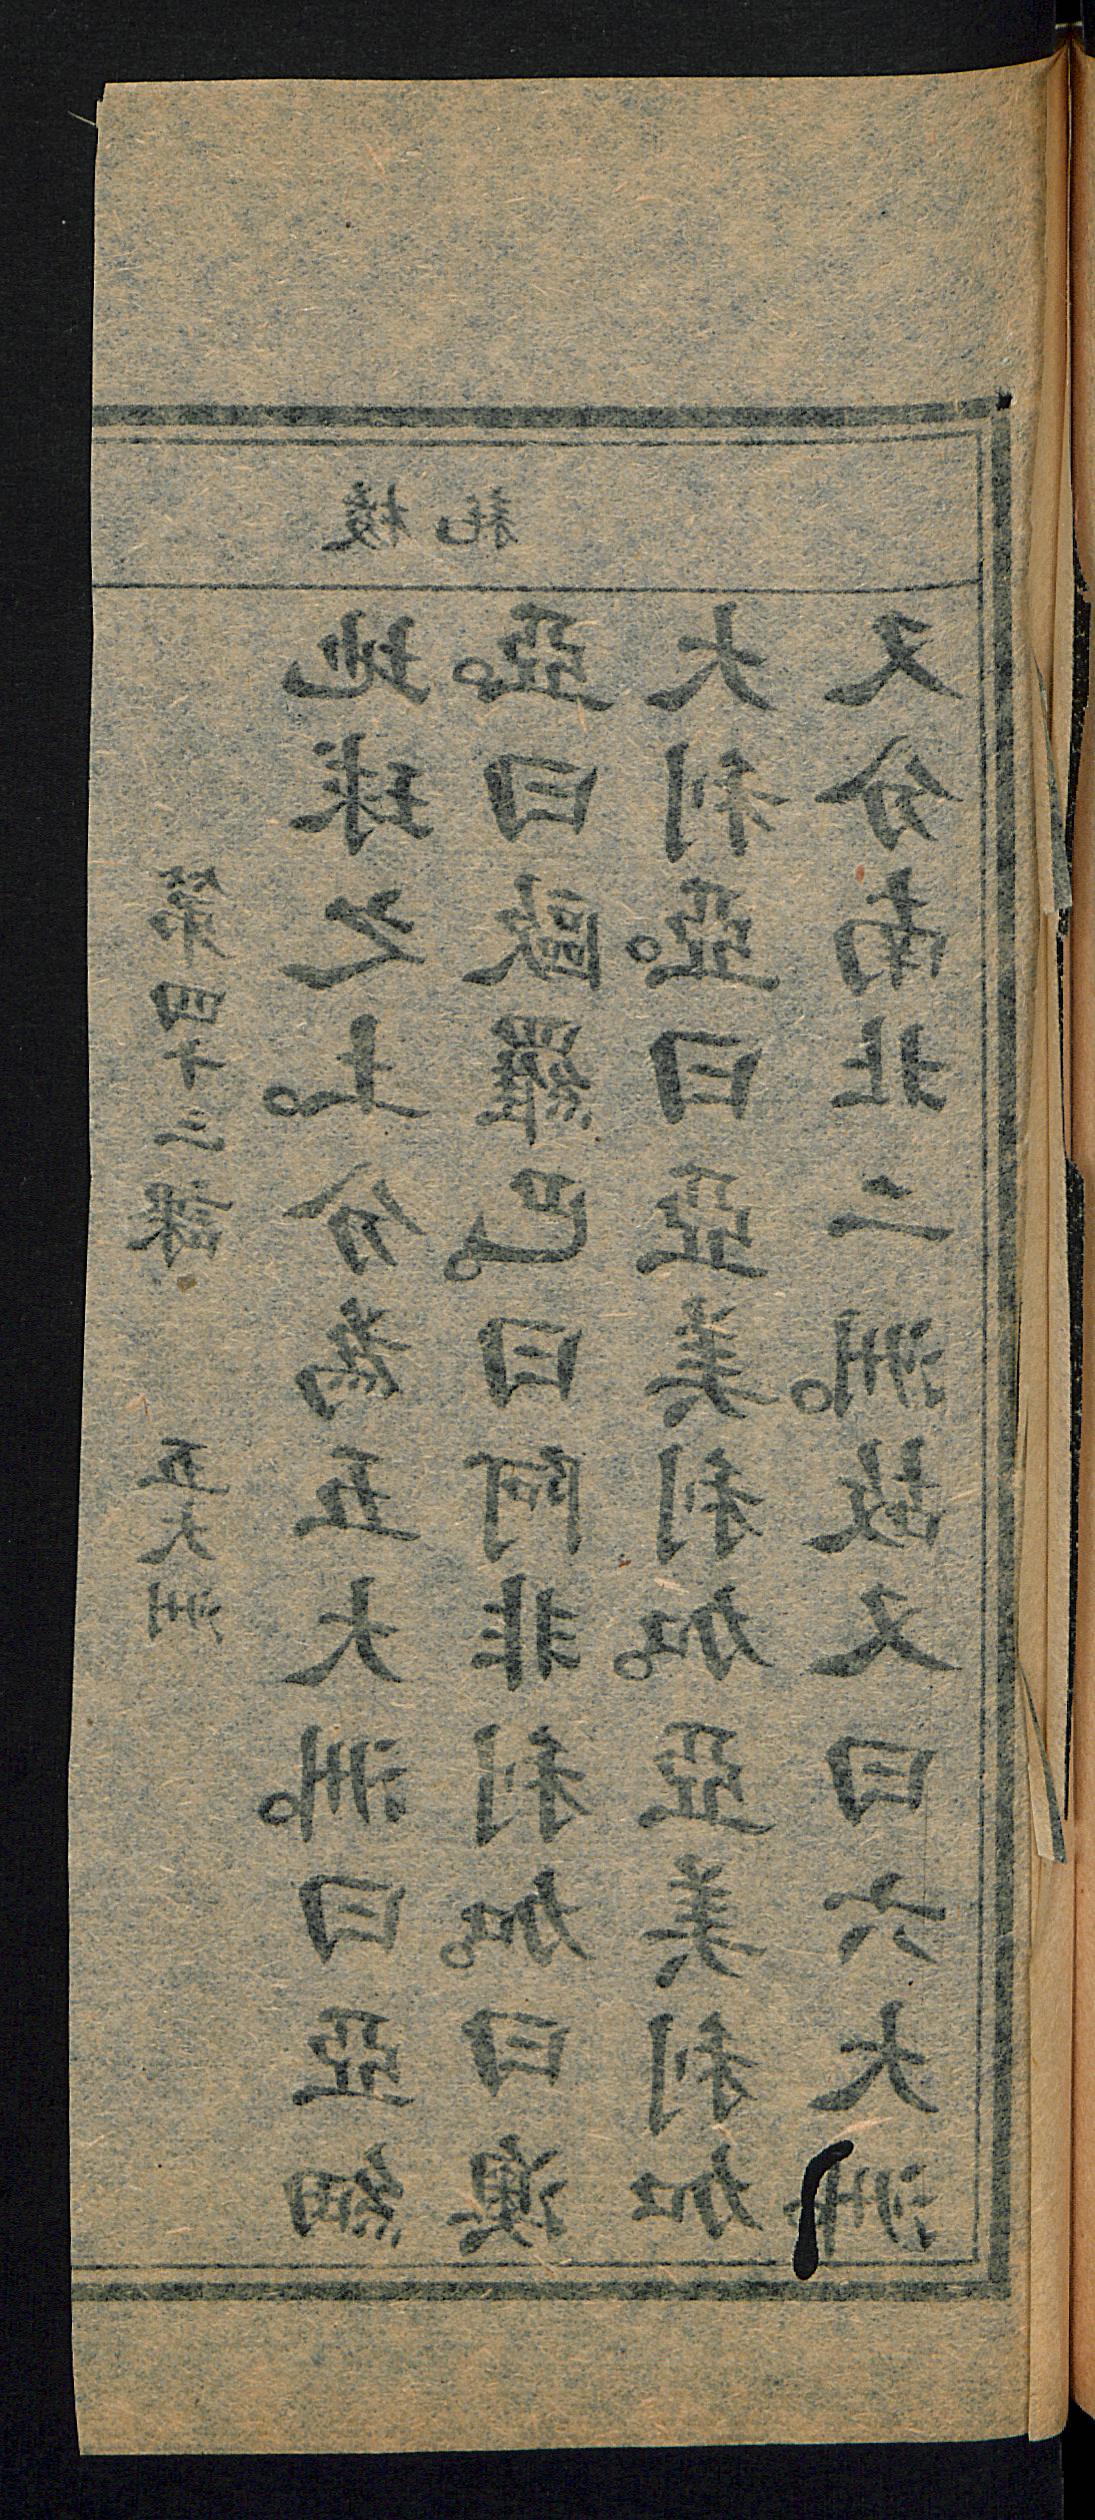 第四十三課 五大洲
地球之上。分為五大洲。曰亞細
亞。曰歐羅巴。曰阿非利加。曰澳
大利亞。曰亞美利加。亞美利加
又分南北二洲。故又曰六大洲